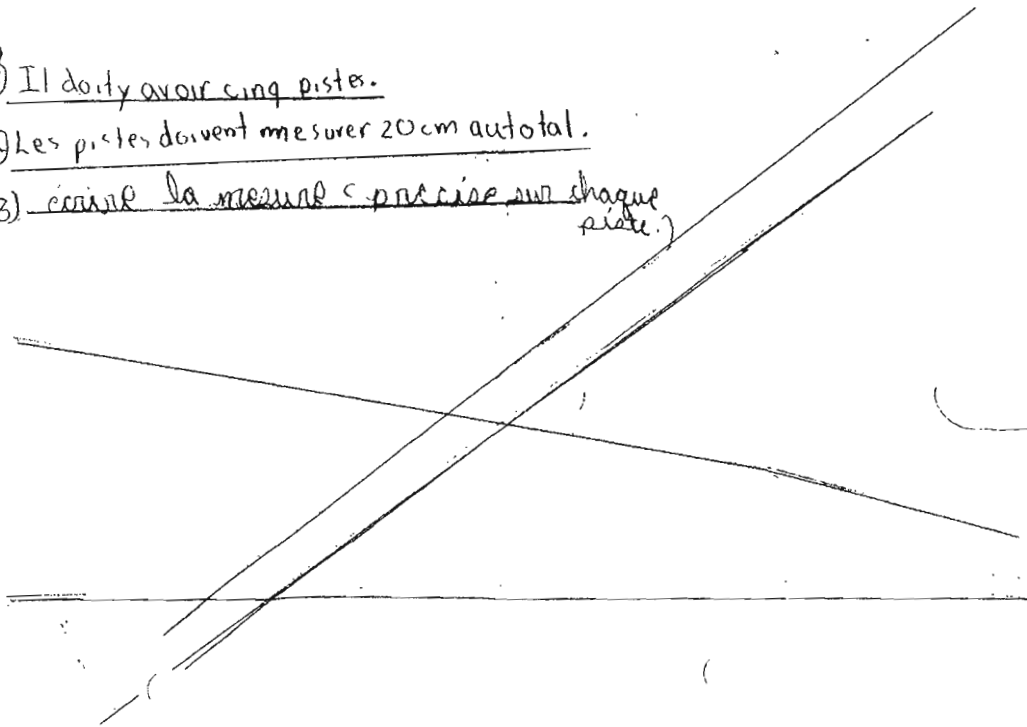 ) Il doity avoir cinq pistes.
) Les pistes doivent mesurer 20 cm autotal.
3) écrire la mesure ( précise sur chaque
piste.)